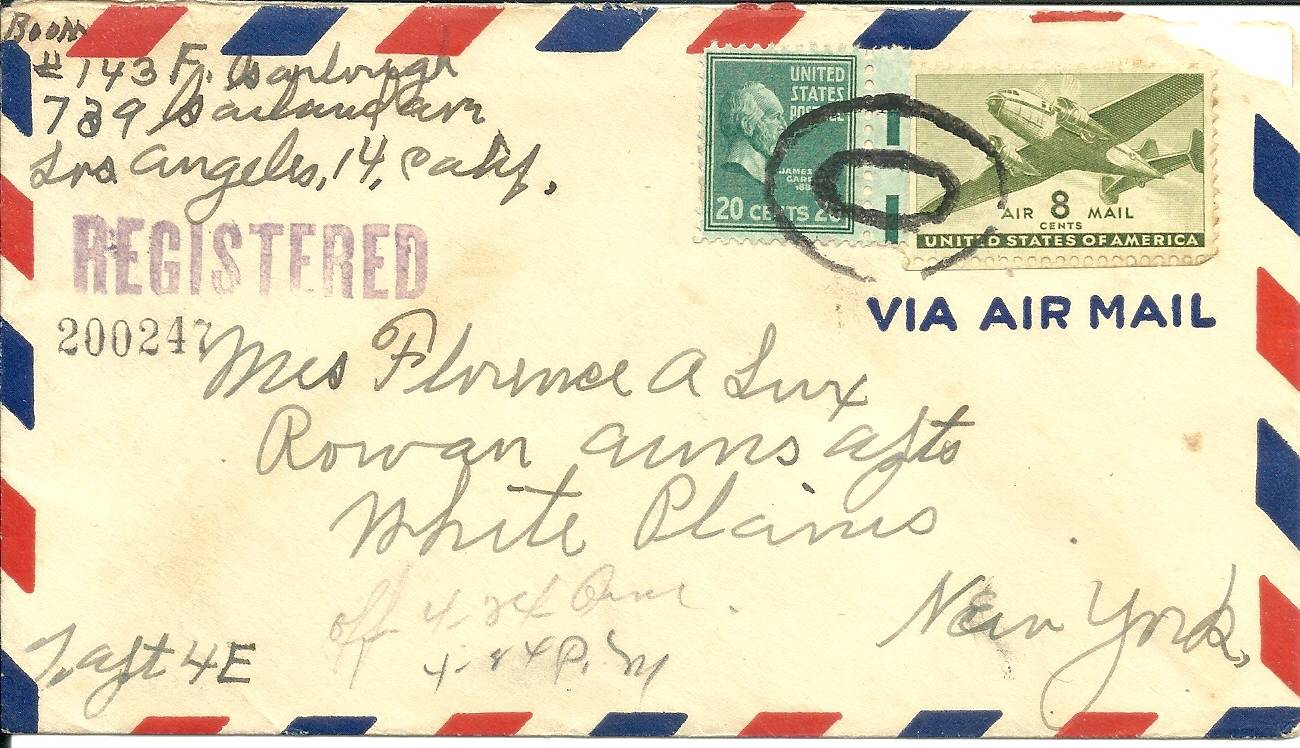 Room
#143 F.
729 Garland Ave
Los Angeles, 14, Calif.
REGISTERED
200247
UNITED
STATES
POSTAGE
JAMES
20 CENTS 20
AIR 8 MAIL
CENTS
UNITED STATES OF AMERICA
VIA AIR MAIL
Mrs Florence A Lux
Rowan Apts
White Plains
New York,
off 4-24
4-24 P.M
Apt 4E